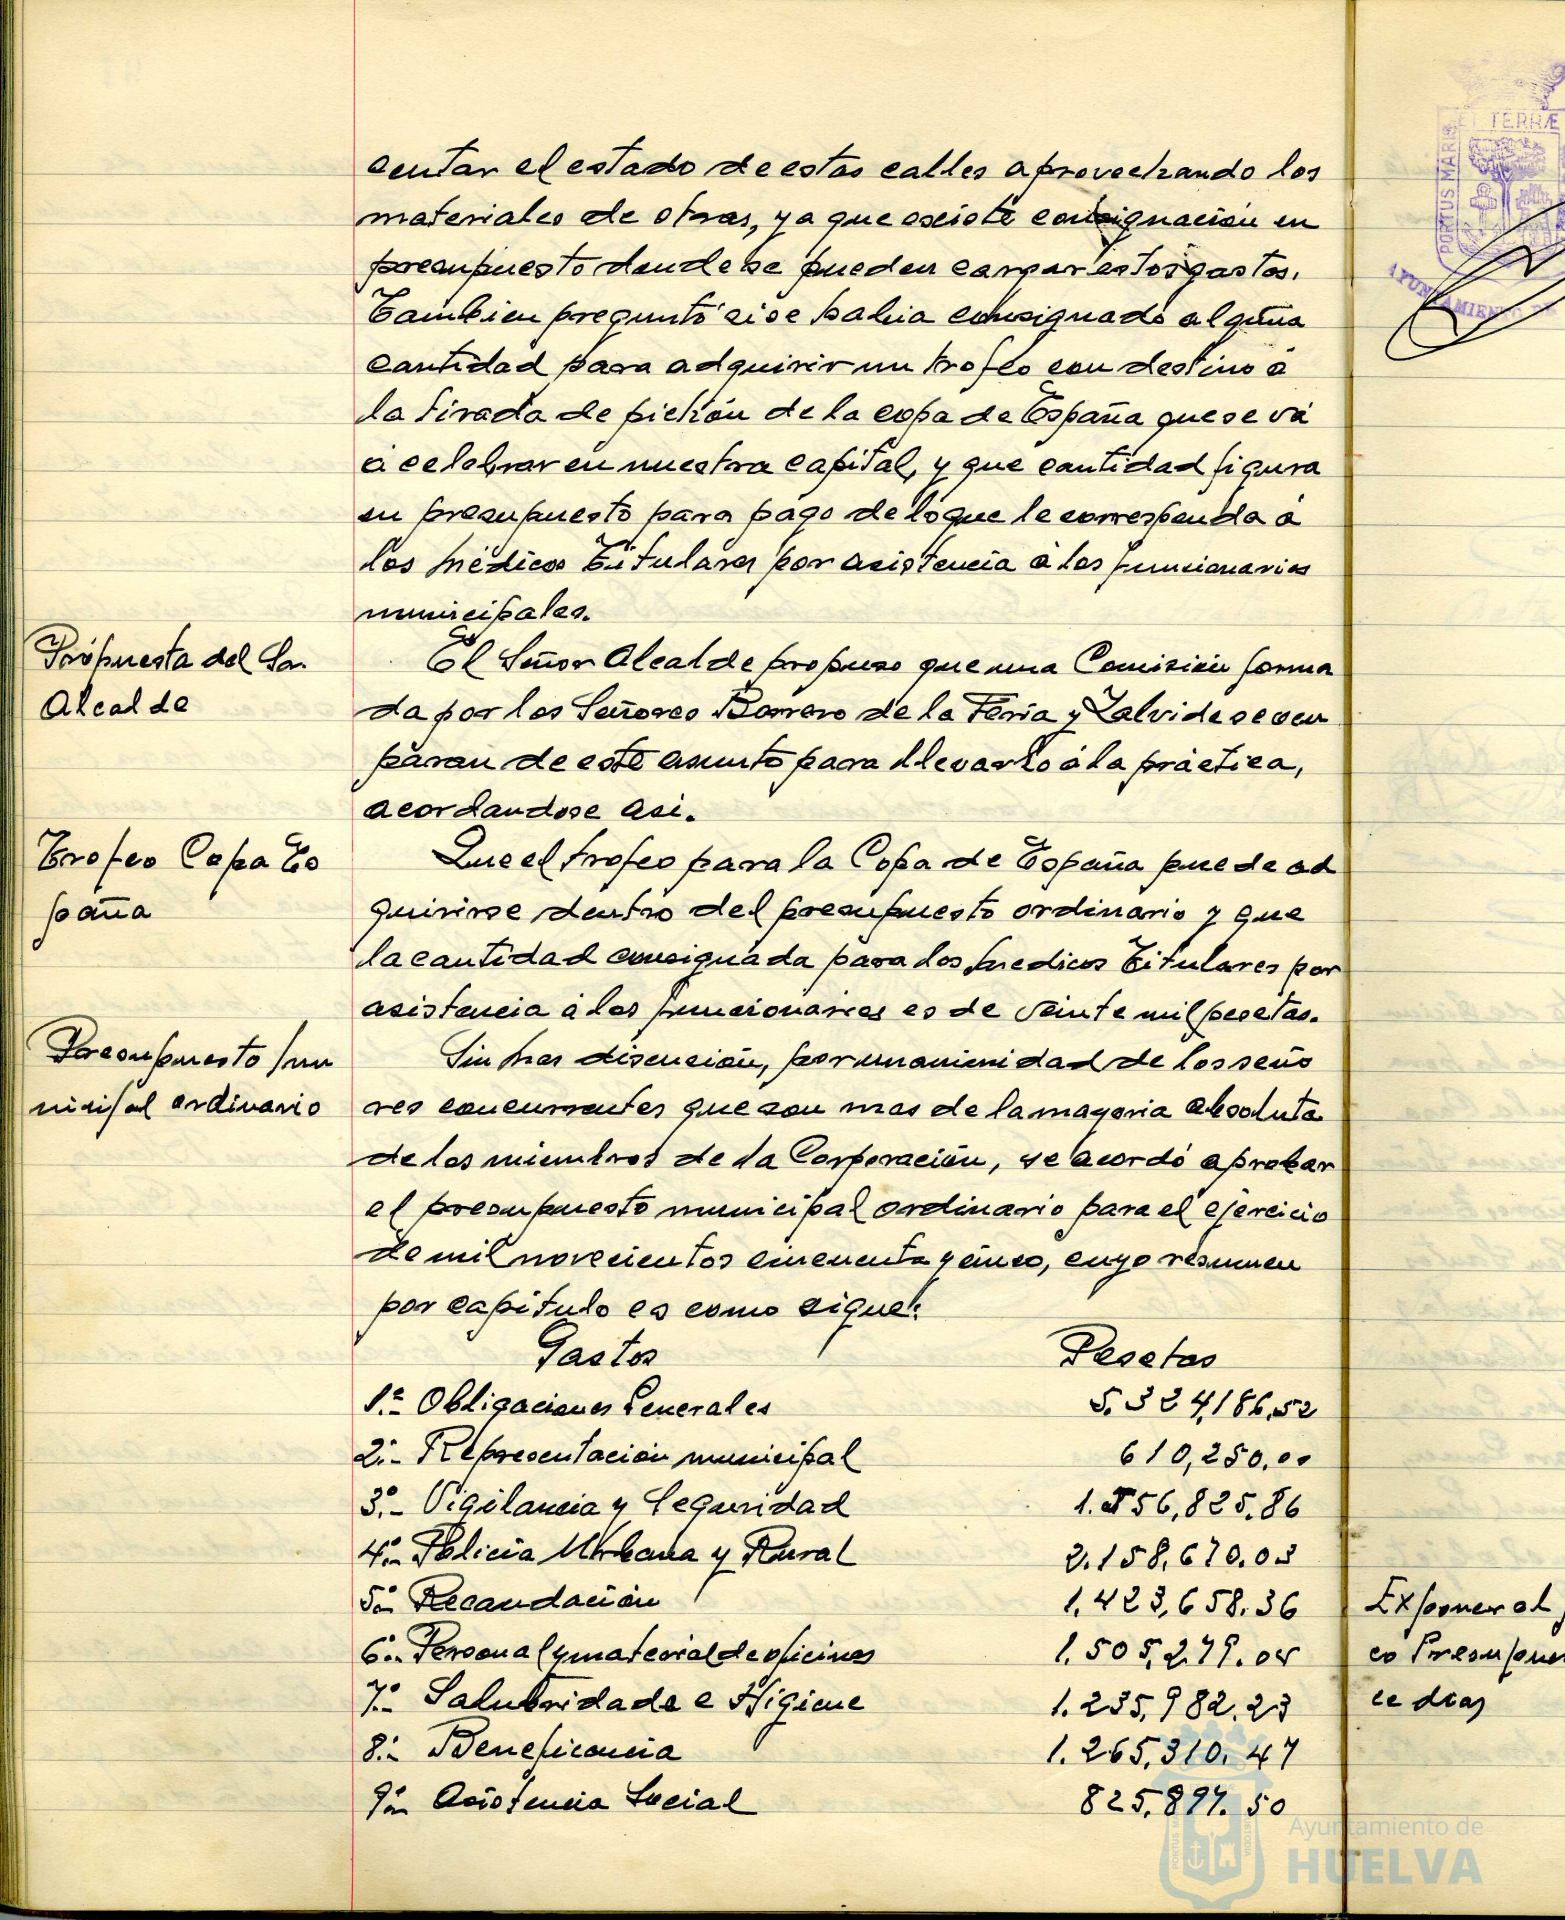 centar el estado de estas calles aprovechando los
materiales de otras, ya que existe consignación en
presupuesto donde se pueden cargar estos gastos.
Tambien preguntó si se habia consignado alguna
cantidad para adquirir un trofeo con destino á
la tirada de pichón de la copa de España que se vá
á celebrar en nuestra capital, y que cantidad figura
en presupuesto para pago de lo que le corresponda á
los Médicos Titulares por asistencia á los funcionarios
municipales.
Própuesta del Sr.
Alcalde
El Señor Alcalde propuso que una Comisión forma
da por los Señores Borrero de la Feria y Zalvide se ocu
paran de este asunto para llevarlo á la práctica,
acordandose asi.
Trofeo Copa Es
paña
Que el trofeo para la Copa de España puede ad
quirirse dentro del presupuesto ordinario y que
la cantidad consignada para los Medicos Titulares por
asistencia á los funcionarios es de veinte mil pesetas.
Presupuesto mu
nicipal ordinario
Sin mas discución, por unanimidad de los seño
res concurrentes que son mas de la mayoria absoluta
de los miembros de la Corporación, se acordó aprobar
el presupuesto municipal ordinario para el ejercicio
de mil novecientos cincuenta y cinco, cuyo resumen
por capitulo es como sigue:
Gastos Pesetas
1º.- Obligaciones Generales 5.324,186,52
2º.- Representación municipal 610,250.00
3º.- Vigilancia y Seguridad 1.556,825.86
4º.- Policia Urbana y Rural 2.158,670.03
5º.- Recaudación 1,423,658.36
6º.- Personal y material de oficinas 1.505,279.05
7º.- Salubridad e Higiene 1.235,982.23
8º.- Beneficencia 1.265,310.47
9º.- Asistencia Social 825,897.50
Exponer al
co Presupues
ce dias
PORTUS MARIS
ET TERRÆ
AYUNTAMIENTO DE
Ayuntamiento de
HUELVA